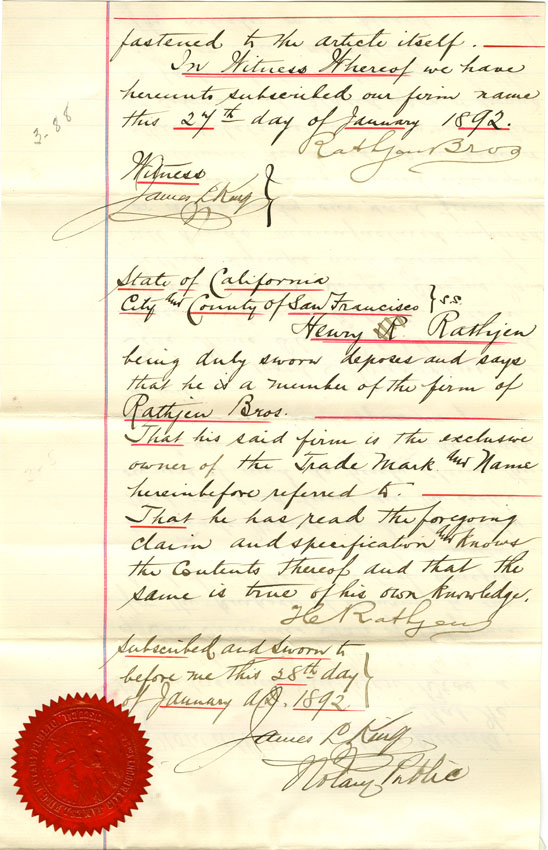 fastened to the article itself.
In Witness Whereof we have
hereunto subscribed our firm name
this 27th day of January 1892.
Rathjen Bros
3-88
Witness
James L King }
State of California
City and County of San Francisco } s.s.
Henry Rathjen
being duly sworn deposes and says
that he is a member of the firm of
Rathjen Bros.
That his said firm is the exclusive
owner of the Trade Mark and Name
hereinbefore referred to.
That he has read the foregoing
claim and specification and knows
the Contents thereof and that the
same is true of his own knowledge.
H Rathjen
Subscribed and sworn to
before me this 28th day
of January a.d. 1892 }
James L King
Notary Public